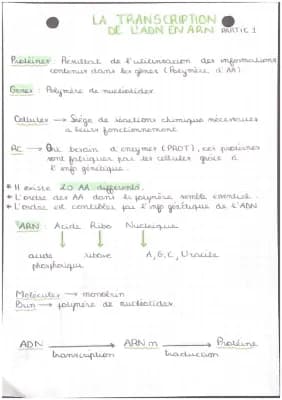 LA TRANSCRIPTION
DE L'ADN EN ARN PARTIE 1
Protéines : Résultat de l'utilisation des informations
contenue dans les gènes (Polymère d'AA)
Gènes : Polymère de nucléotides
Cellules → Siège de réactions chimique nécessaires
à leurs fonctionnement
RC → besoin d'enzymes (PROT), ces protéines
sont fabriquées par les cellules grâce à
l'info génétique.
* Il existe 20 AA différents.
* L'ordre des AA dans le polymère semble essentiel.
* L'ordre est par l'info génétique de l'ADN
ARN : Acide Ribo Nucléique
acide phosphorique
ribose
A, G, C, Uracile
Molécules → monobrin
Brin → polymère de nucléotides
ADN → ARN m → Protéine
transcription traduction